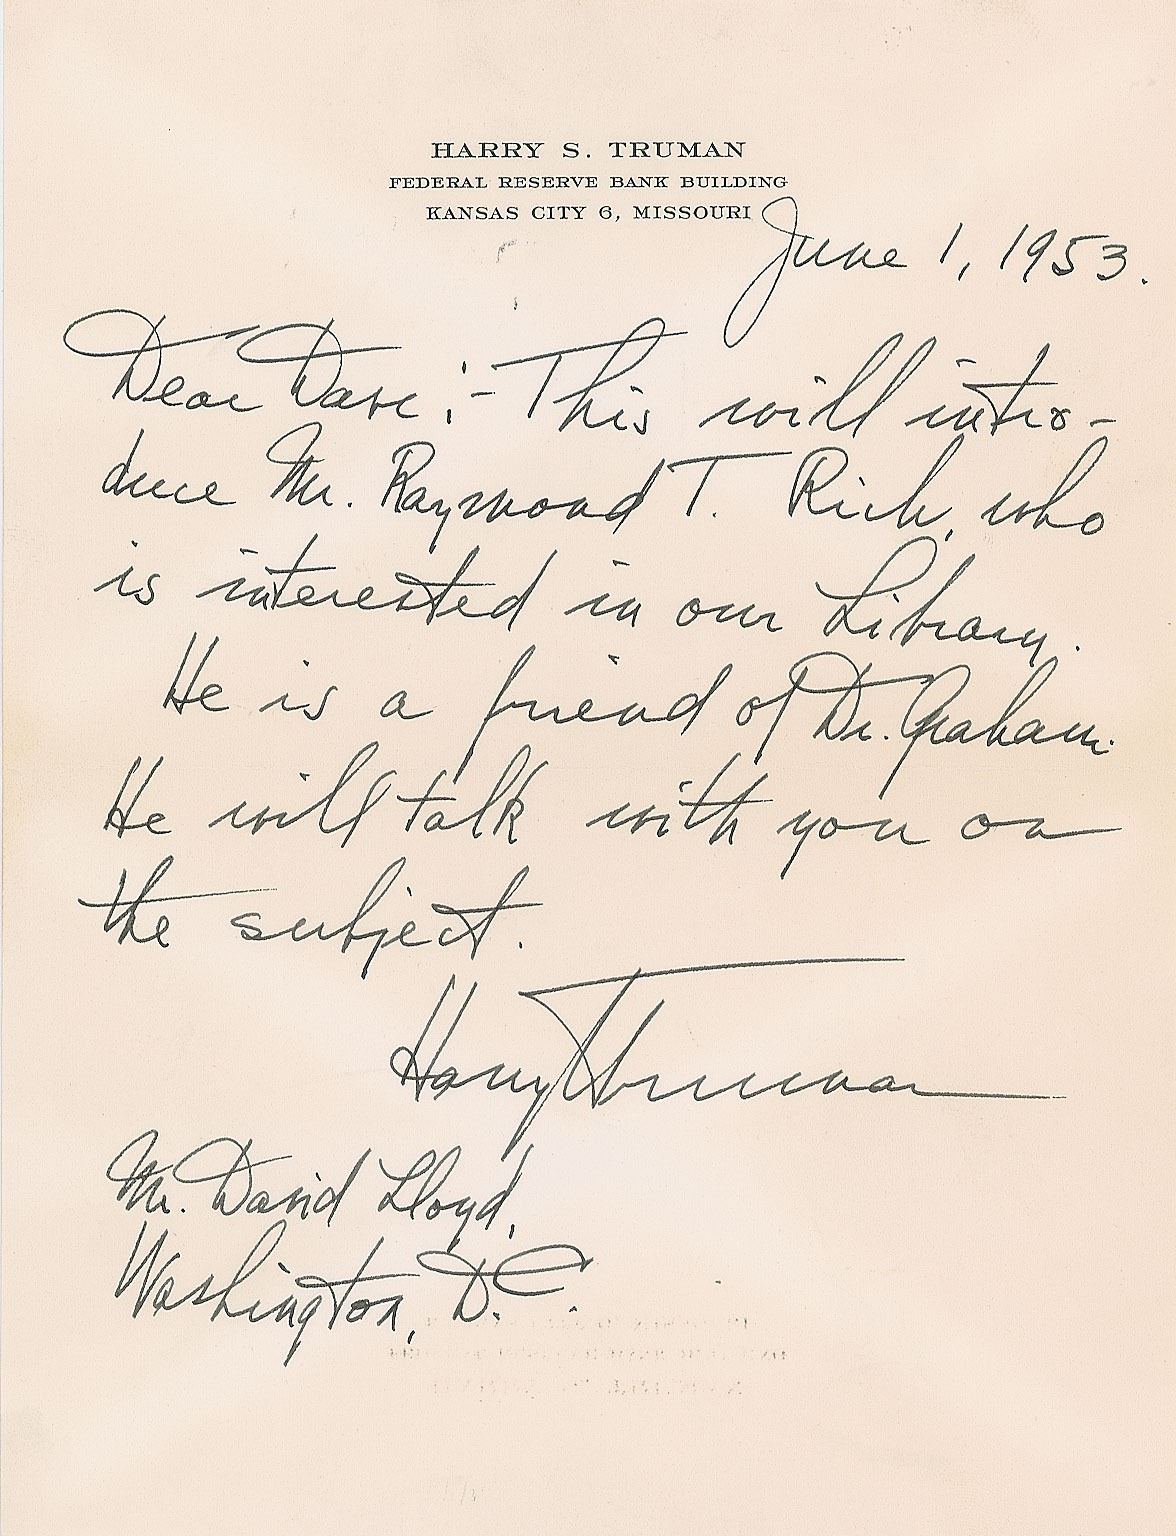 HARRY S. TRUMAN
FEDERAL RESERVE BANK BUILDING
KANSAS CITY 6, MISSOURI
June 1, 1953.
Dear Dave:- This will intro-
duce Mr. Raymond T. Rich, who
is interested in our Library.
He is a friend of Dr. Graham.
He will talk with you on
the subject.
Harry Truman
Mr. David Lloyd,
Washington, D.C.